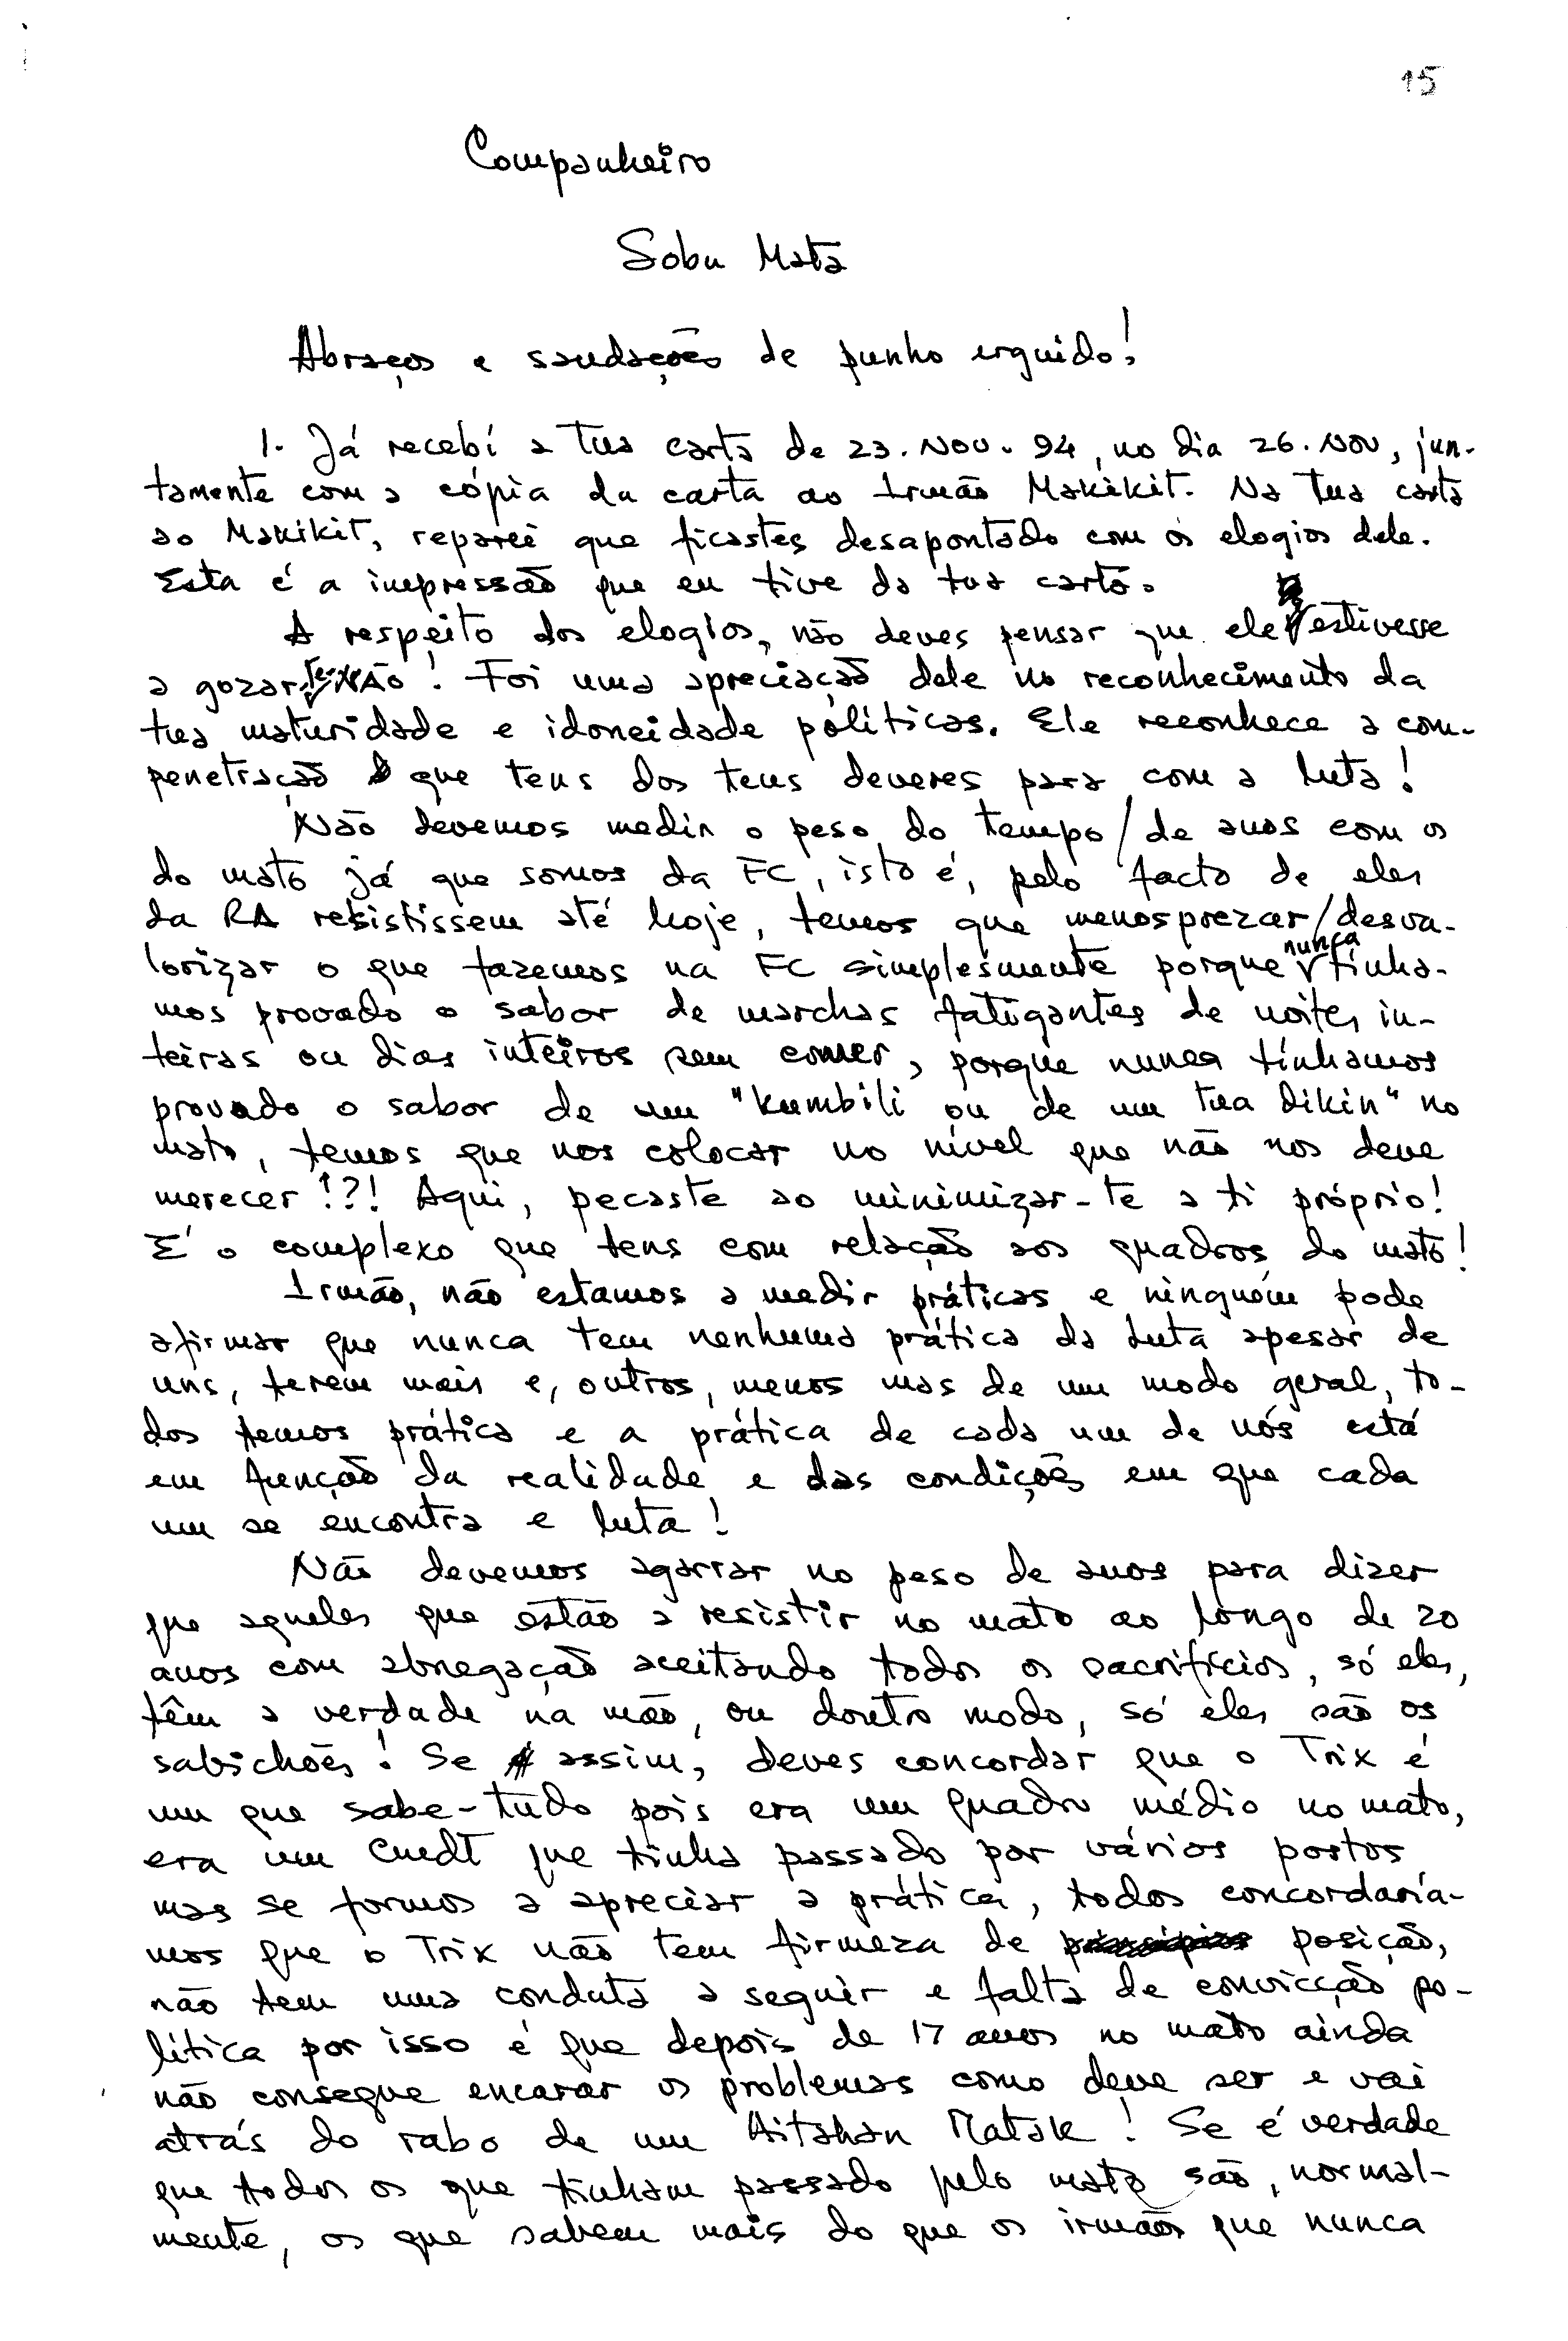 15
Companheiro
Sobu Mata
Abraços e saudações de punho erguido!
1- Já recebí a tua carta de 23.NOV.94, no dia 26.NOV, jun-
tamente com a cópia da carta ao Irmão Makikit. Na tua carta
ao Makikit, reparei que ficastes desapontado com os elogios dele.
Esta é a impressão que eu tive da tua carta.
A respeito dos elogios, não deves pensar que ele estivesse
a gozar-te. NÃo! Foi uma apreciação dele no reconhecimento da
tua maturidade e idoneidade políticas. Ele reconhece a com-
penetração que tens dos teus deveres para com a luta!
Não devemos medir o peso do tempo/de anos com os
do mato já que somos da FC, isto é, pelo facto de eles
da RA resistissem até hoje, temos que menosprezar/desva-
lorizar o que fazemos na FC simplesmente porque nunca tínha-
mos provado o sabor de marchas fatigantes de noites in-
teiras ou dias inteiros sem comer, porque nunca tínhamos
provado o sabor de um "kumbili ou de um tua dikin" no
mato, temos que nos colocar no nível que não nos deve
merecer!?! Aqui, pecaste ao minimizar-te a ti próprio!
É o complexo que tens com relação aos quadros do mato!
Irmão, não estamos a medir práticas e ninguém pode
afirmar que nunca tem nenhuma prática da luta apesar de
uns, terem mais e, outros, menos mas de um modo geral, to-
dos temos prática e a prática de cada um de nós está
em função da realidade e das condições em que cada
um se encontra e luta!
Não devemos agarrar no peso de anos para dizer
que aqueles que estão a resistir no mato ao longo de 20
anos com abnegação aceitando todos os sacrifícios, só eles,
têm a verdade na mão, ou doutro modo, só eles são os
sabichões! Se assim, deves concordar que o Trix é
um que sabe-tudo pois era um quadro médio no mato,
era um Cmdt que tinha passado por vários postos
mas se formos a apreciar a prática, todos concordaría-
mos que o Trix não tem firmeza de posição,
não tem uma conduta a seguir e falta de convicção po-
lítica por isso é que depois de 17 anos no mato ainda
não consegue encarar os problemas como deve ser e vai
atrás do rabo de um Aitahan Matak! Se é verdade
que todos os que tinham passado pelo mato são, normal-
mente, os que sabem mais do que os irmãos que nunca